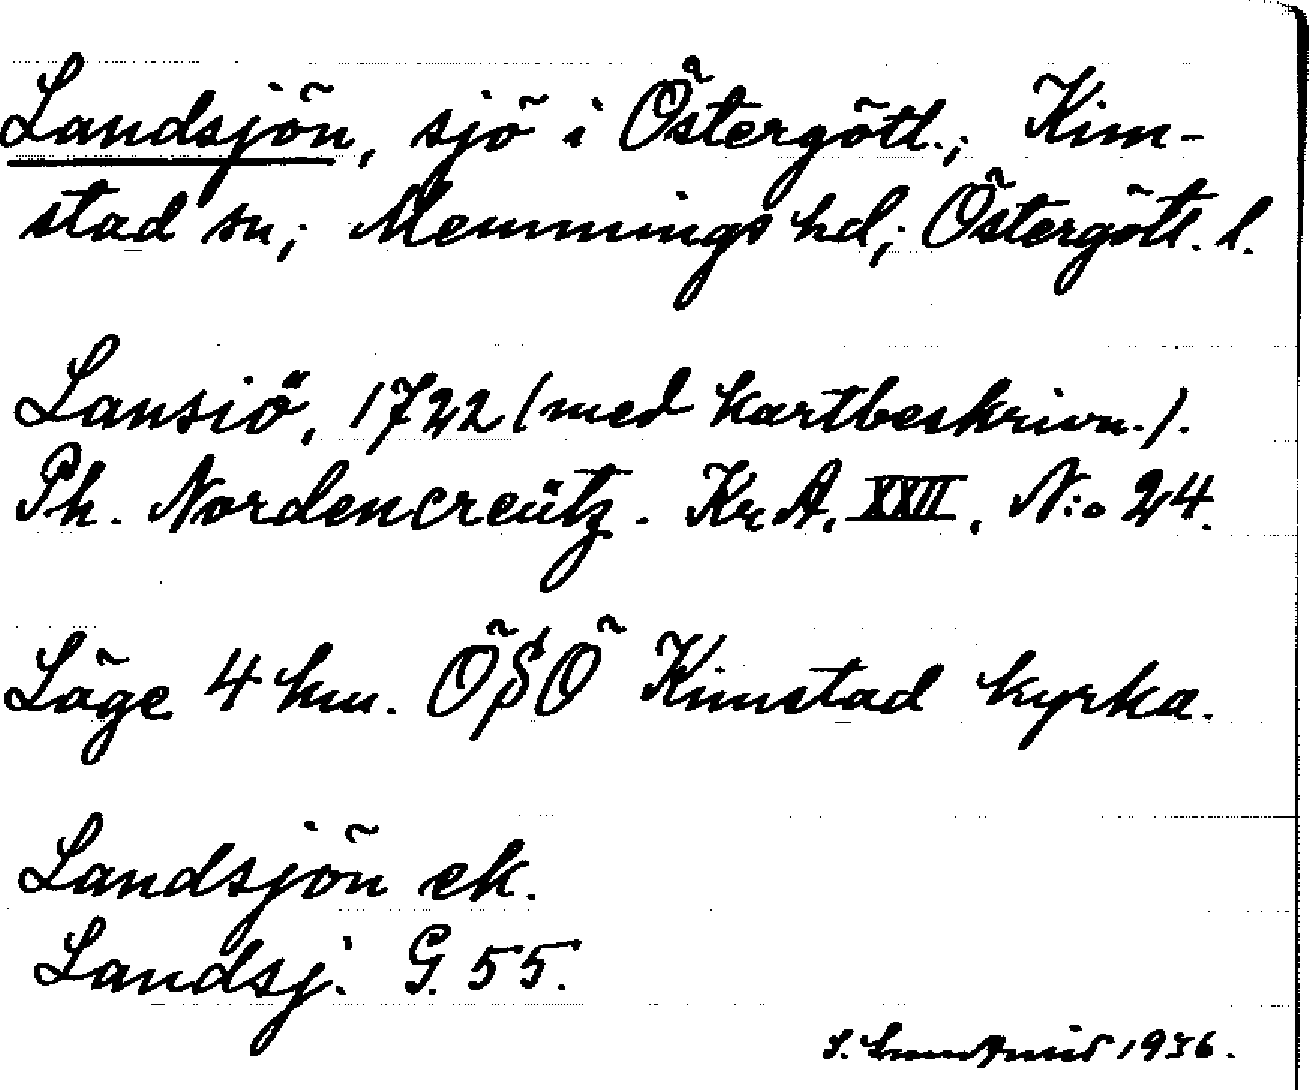 Landsjön, sjö i Östergötl.; Kim-
stad sn; Memmings hd; Östergötl. l.
Lansiö, 1722 (med kartbeskrivn.).
Ph. Nordencreütz. Kr. A. XXII, N:o 24.
Läge 4 km. ÖSÖ Kimstad kyrka.
Landsjön ek.
Landsj. G. 55.
1936.